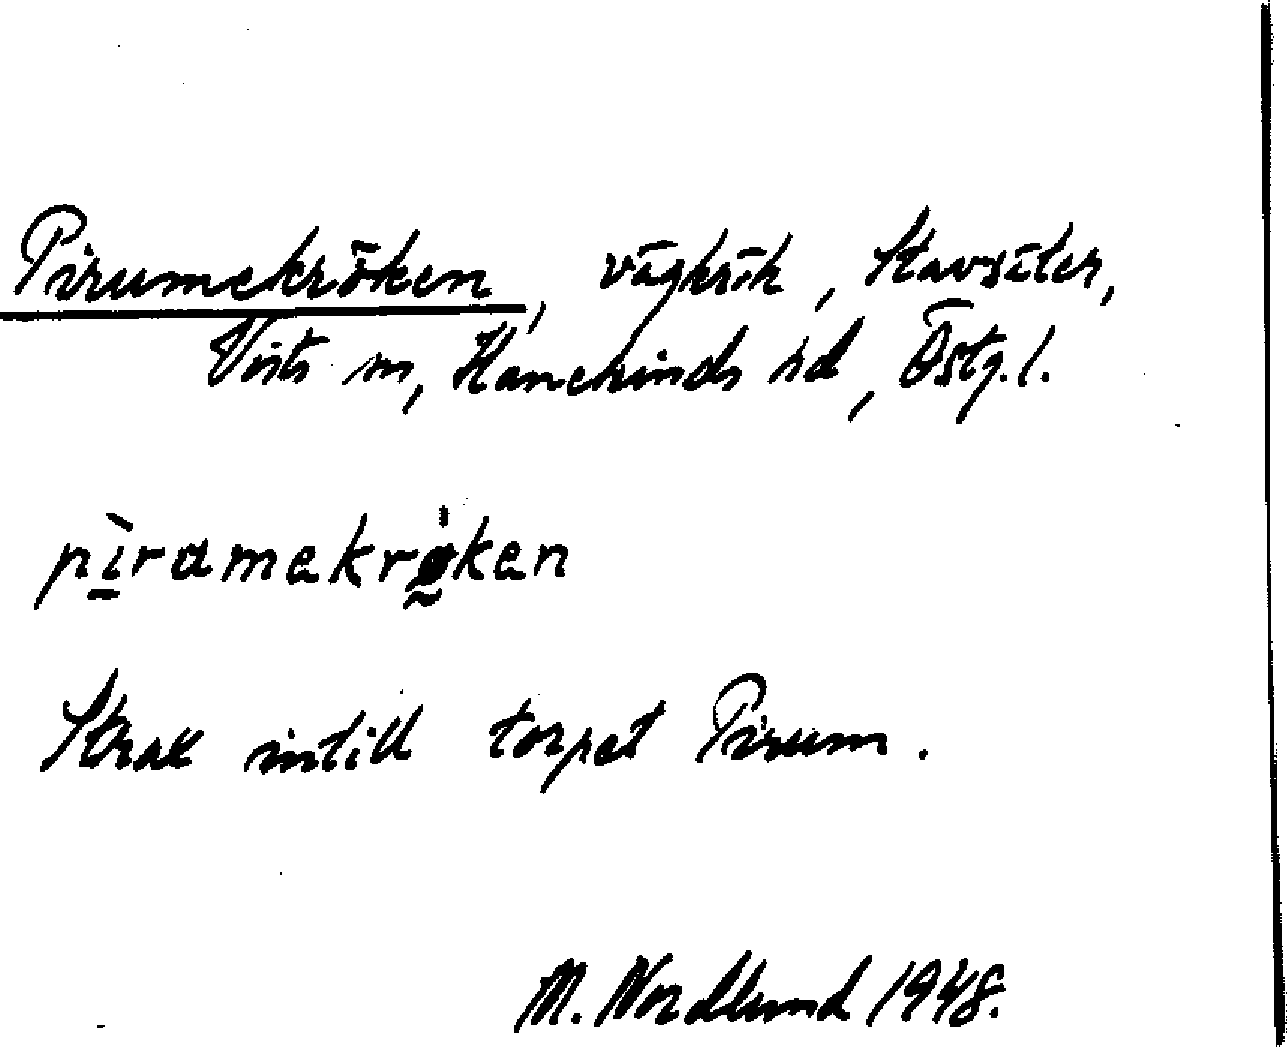 Pirumekröken, vägkrök, Stavsäter,
Vists sn, Hanekinds hd, Östg.l.
pìramekrøken
Strax intill torpet Pirum.
M. Nordlund 1948.